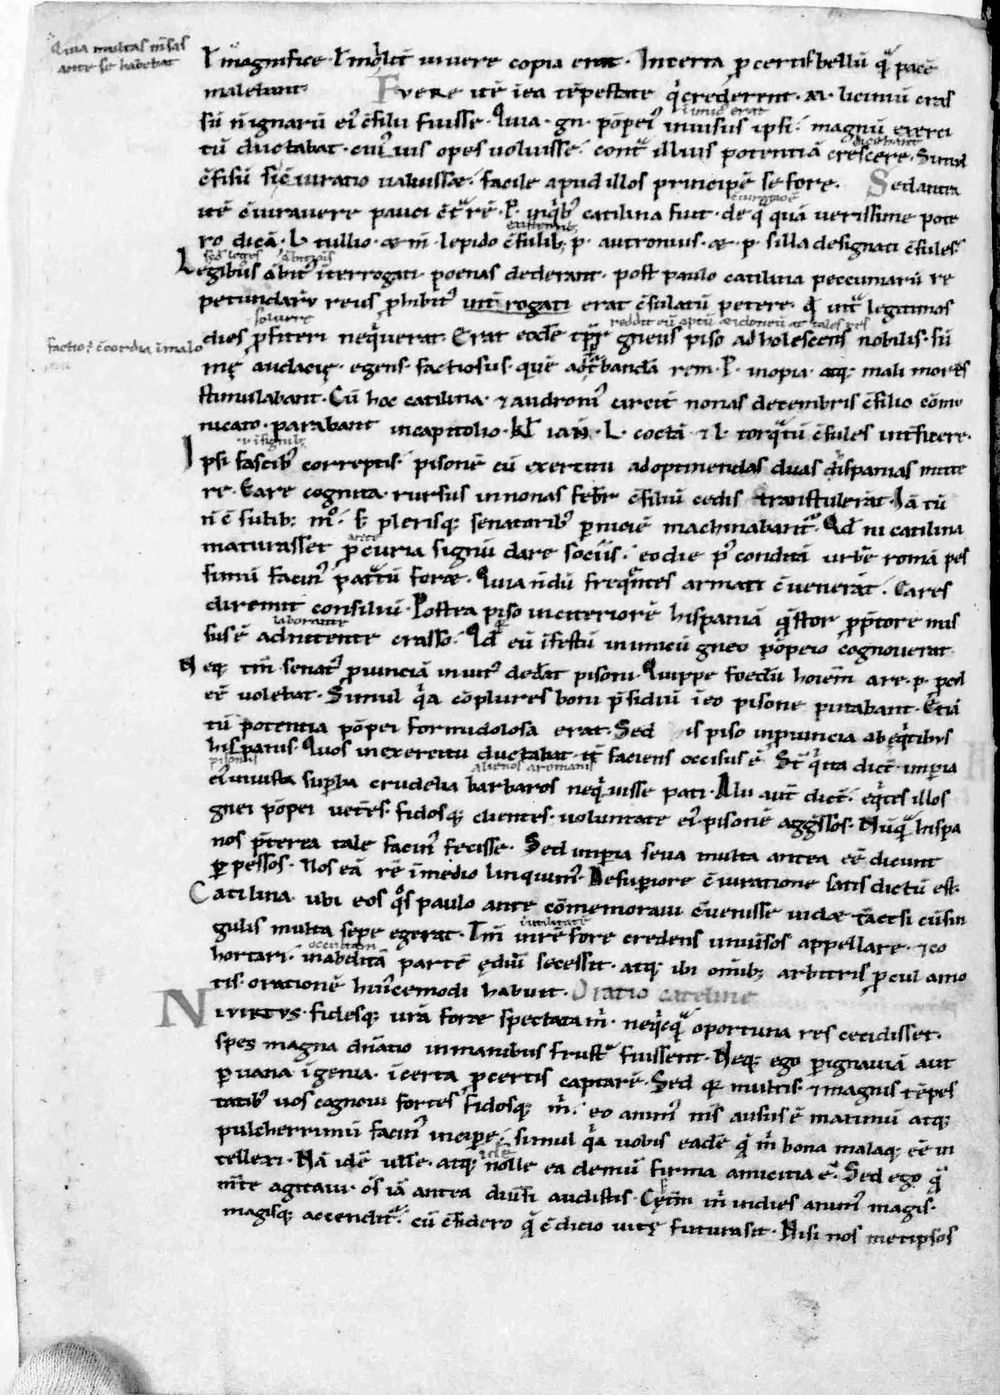 Quia multas missas
ante se habebat
ł magnifice · ł mollit̄ uiuere copia erat · Incerta p certis bellū q̄ pacē
malebant · Fuere itē i ea tēpestate q̄ crederent · M · liciniū cras
sū n̄ ignarū ei' c̄silii fuisse · Quia · gn · pōpei' inuisus ipsi · magnū exerci
inimic' erat
tū ductabat · cui'uis opes uoluisse · cont̄ illius potentiā crescere · Simul
dicebant
c̄fisū si c̄iuratio ualuisset · facile apud illos principē se fore · Sed antea
itē c̄iurauere pauci c̄t̄ rē · P · in q̄b' catilina fuit · de q̄ quā uerissime pote
c̄iuratiōe
ro dicā · L · tullio · et m̄ · lepido c̄sulib; p · autronius · et · p · silla designati c̄sules
Legibus ābit' īterrogati · poenas dederant · post paulo catilina peccuniarū re
petundarū reus p̄hibit' int̄rogati erat c̄sulatū petere · q̄ int̄ legitimos
soluere
dies p̄fiteri neq̄uerat · Erat eodē tp̄r gneus piso adholescens nobilis · sū
reddit eū aptū et idoneū ad tales res
factio · c̄cordia ī malo
mę audacię · egens factiosus · quē ad t̄bandā rem · P · inopia atq; mali mores
stimulabant · Cū hoc catilina · & autroni' circit̄ nonas decembris c̄silio cōmu
nicato · parabant in capitolio · kł ian̄ · L · coctā & L · torq̄tū c̄sules int̄ficere ·
Ipsi fascib' correptis · pisonē cū exercitu ad optinendas duas hispanias mitte
re · Ea re cognita · rursus in nonas febr̄ c̄siliū cedis transtulerat · Iā tū
n̄ c̄sulib; m̊ · s; plerisq; senatorib' pniciē machinabant̄ · Qd̄ ni catilina
maturasset p̄ curia signū dare sociis · eo die p' conditā urbē romā pes
ante
simū facin' pat̄tū foret · Quia n̄dū freq̄ntes armati c̄uenerāt · Ea res
diremit consiliū · Postea piso in citeriorē hispaniā q̄stor p̄ptore mis
sus ē adnitente crasso · Qd̄ eū īfestū inimicū gneo pōpeio cognouerat
laborante
Neq; tm̄ senat' puinciā inuit' dedāt pisoni · Quippe foedū hoīem a re · p · pcul
eē uolebat · Simul q̄a cōplures boni p̄sidiū ī eo pisone putabant · Etiā
tū potentia pōpei formidolosa erat · Sed is piso in puincia ab eq̄tibus
hispanis · Quos in exercitu ductabat · it̄ faciens occisus ē · St̄ q̄ ita dict̄ · inperia
pisonis
ei' iniusta superba crudelia barbaros neq̄uisse pati · Alii aut̄ dict̄ · eq̄tes illos
gnei pōpei uet̄es · fidosq; clientes · uoluntate ei' pisonē aggressos · Nūq̄ hispa
nos p̄terea tale facin' fecisse · Sed inperia seua multa antea eē dicunt
perpessos · Nos eā rē ī medio linquim' · De superiore c̄iuratione satis dictū est ·
Catilina ubi eos q̊s paulo ante cōmemoraui c̄uenisse uidet tāetsi cū sin
gulis multa sepe egerat · Tm̄ in rē fore credens uniuersos appellare · & co
c̄ utilitatē
hortari · in abditā partē ędiū secessit · atq; ibi omīb; arbitris pcul amo
occultam
tis · orationē hui'cemodi habuit · Oratio cateline
Ni uirtus · fidesq; urā foret spectata m̄ · neq̄cq̄ oportuna res cecidisset ·
spes magna dn̄atio in manibus frustra fuissent · Neq; ego p ignauiā aut
p uana īgenia · īcerta p certis captarē · Sed qr̄ multis & magnis tēpes
tatib' uos cognoui fortes fidosq; m̄ · eo anim' m̄s ausus ē maximū atq;
pulcherrimū facin' incipere · simul q̄a uobis eadē q̄ m̄ bona malaq; eē in
tellexi · Nā idē uelle · atq; nolle ea demū firma amicitia ē · Sed ego q̄
mt̄e agitaui · om̄s iā antea diuersi audistis · Cęt̄m m̄ in dies anim' magis ·
magisq; accendit̄ · cū c̄sidero q̄ c̄dicio uitę futura sit · Nisi nos metipsos